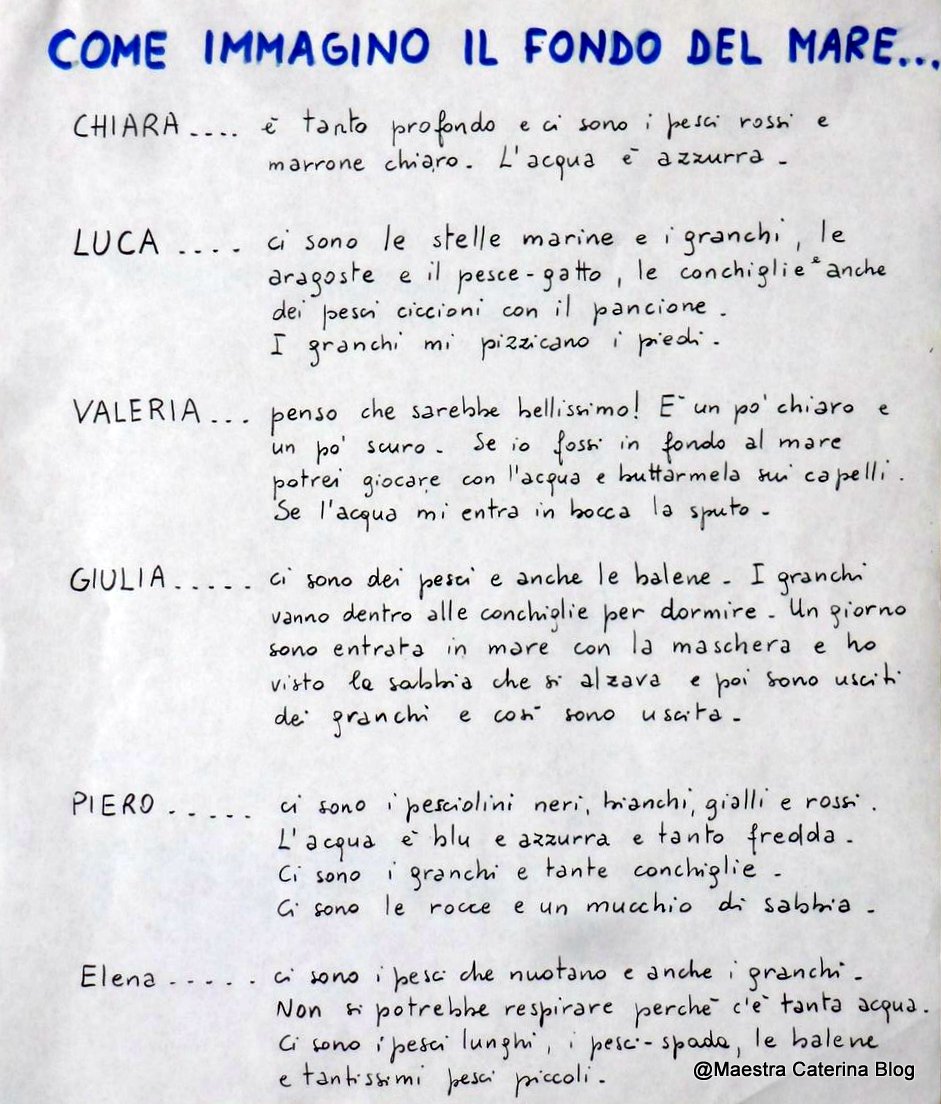 COME IMMAGINO IL FONDO DEL MARE...
CHIARA .... è tanto profondo e ci sono i pesci rossi e
marrone chiaro. L'acqua è azzurra.
LUCA .... ci sono le stelle marine e i granchi, le
aragoste e il pesce-gatto, le conchiglie e anche
dei pesci ciccioni con il pancione.
I granchi mi pizzicano i piedi.
VALERIA ... penso che sarebbe bellissimo! E' un po' chiaro e
un po' scuro. Se io fossi in fondo al mare
potrei giocare con l'acqua e buttarmela sui capelli.
Se l'acqua mi entra in bocca la sputo.
GIULIA ..... ci sono dei pesci e anche le balene. I granchi
vanno dentro alle conchiglie per dormire. Un giorno
sono entrata in mare con la maschera e ho
visto la sabbia che si alzava e poi sono usciti
dei granchi e così sono uscita.
PIERO ..... ci sono i pesciolini neri, bianchi, gialli e rossi.
L'acqua è blu e azzurra e tanto fredda.
Ci sono i granchi e tante conchiglie.
Ci sono le rocce e un mucchio di sabbia.
Elena ..... ci sono i pesci che nuotano e anche i granchi.
Non si potrebbe respirare perchè c'è tanta acqua.
Ci sono i pesci lunghi, i pesci-spada, le balene
e tantissimi pesci piccoli.
@Maestra Caterina Blog